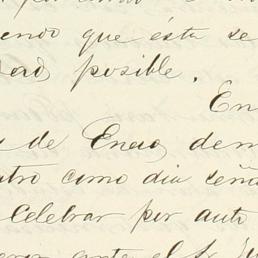 endo que ésta se
dad posible.
En
de Enero de m
tro como dia seña
celebrar por auto
ante el Sr. Ju